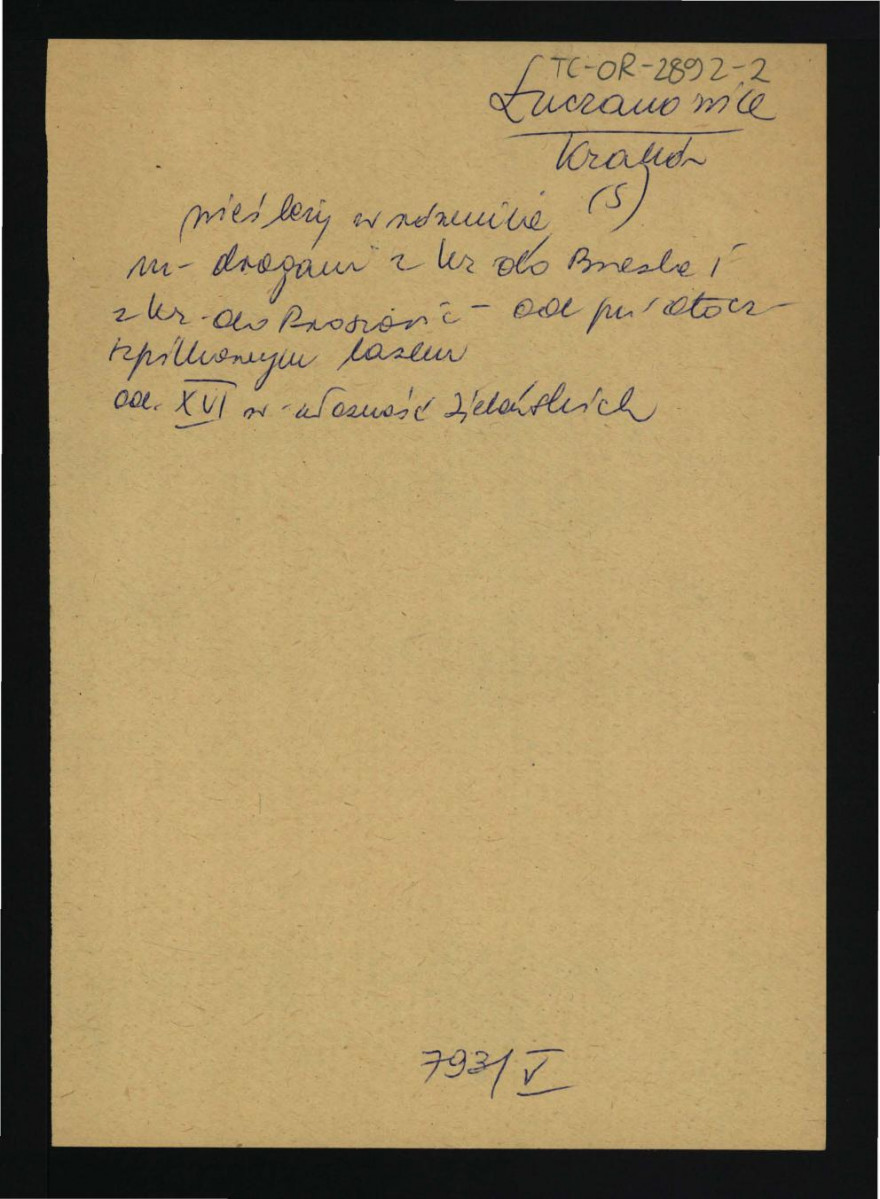 TC-OR-2892-2
Łuczanowice
Kraków
(S)
wieś leży w równinie
m. drogami z Kr do Brzeska i
z Kr. do Proszowic - od pn otocz-
szpilkowym lasem
od. XVI w. własność Żeleńskich
793/V